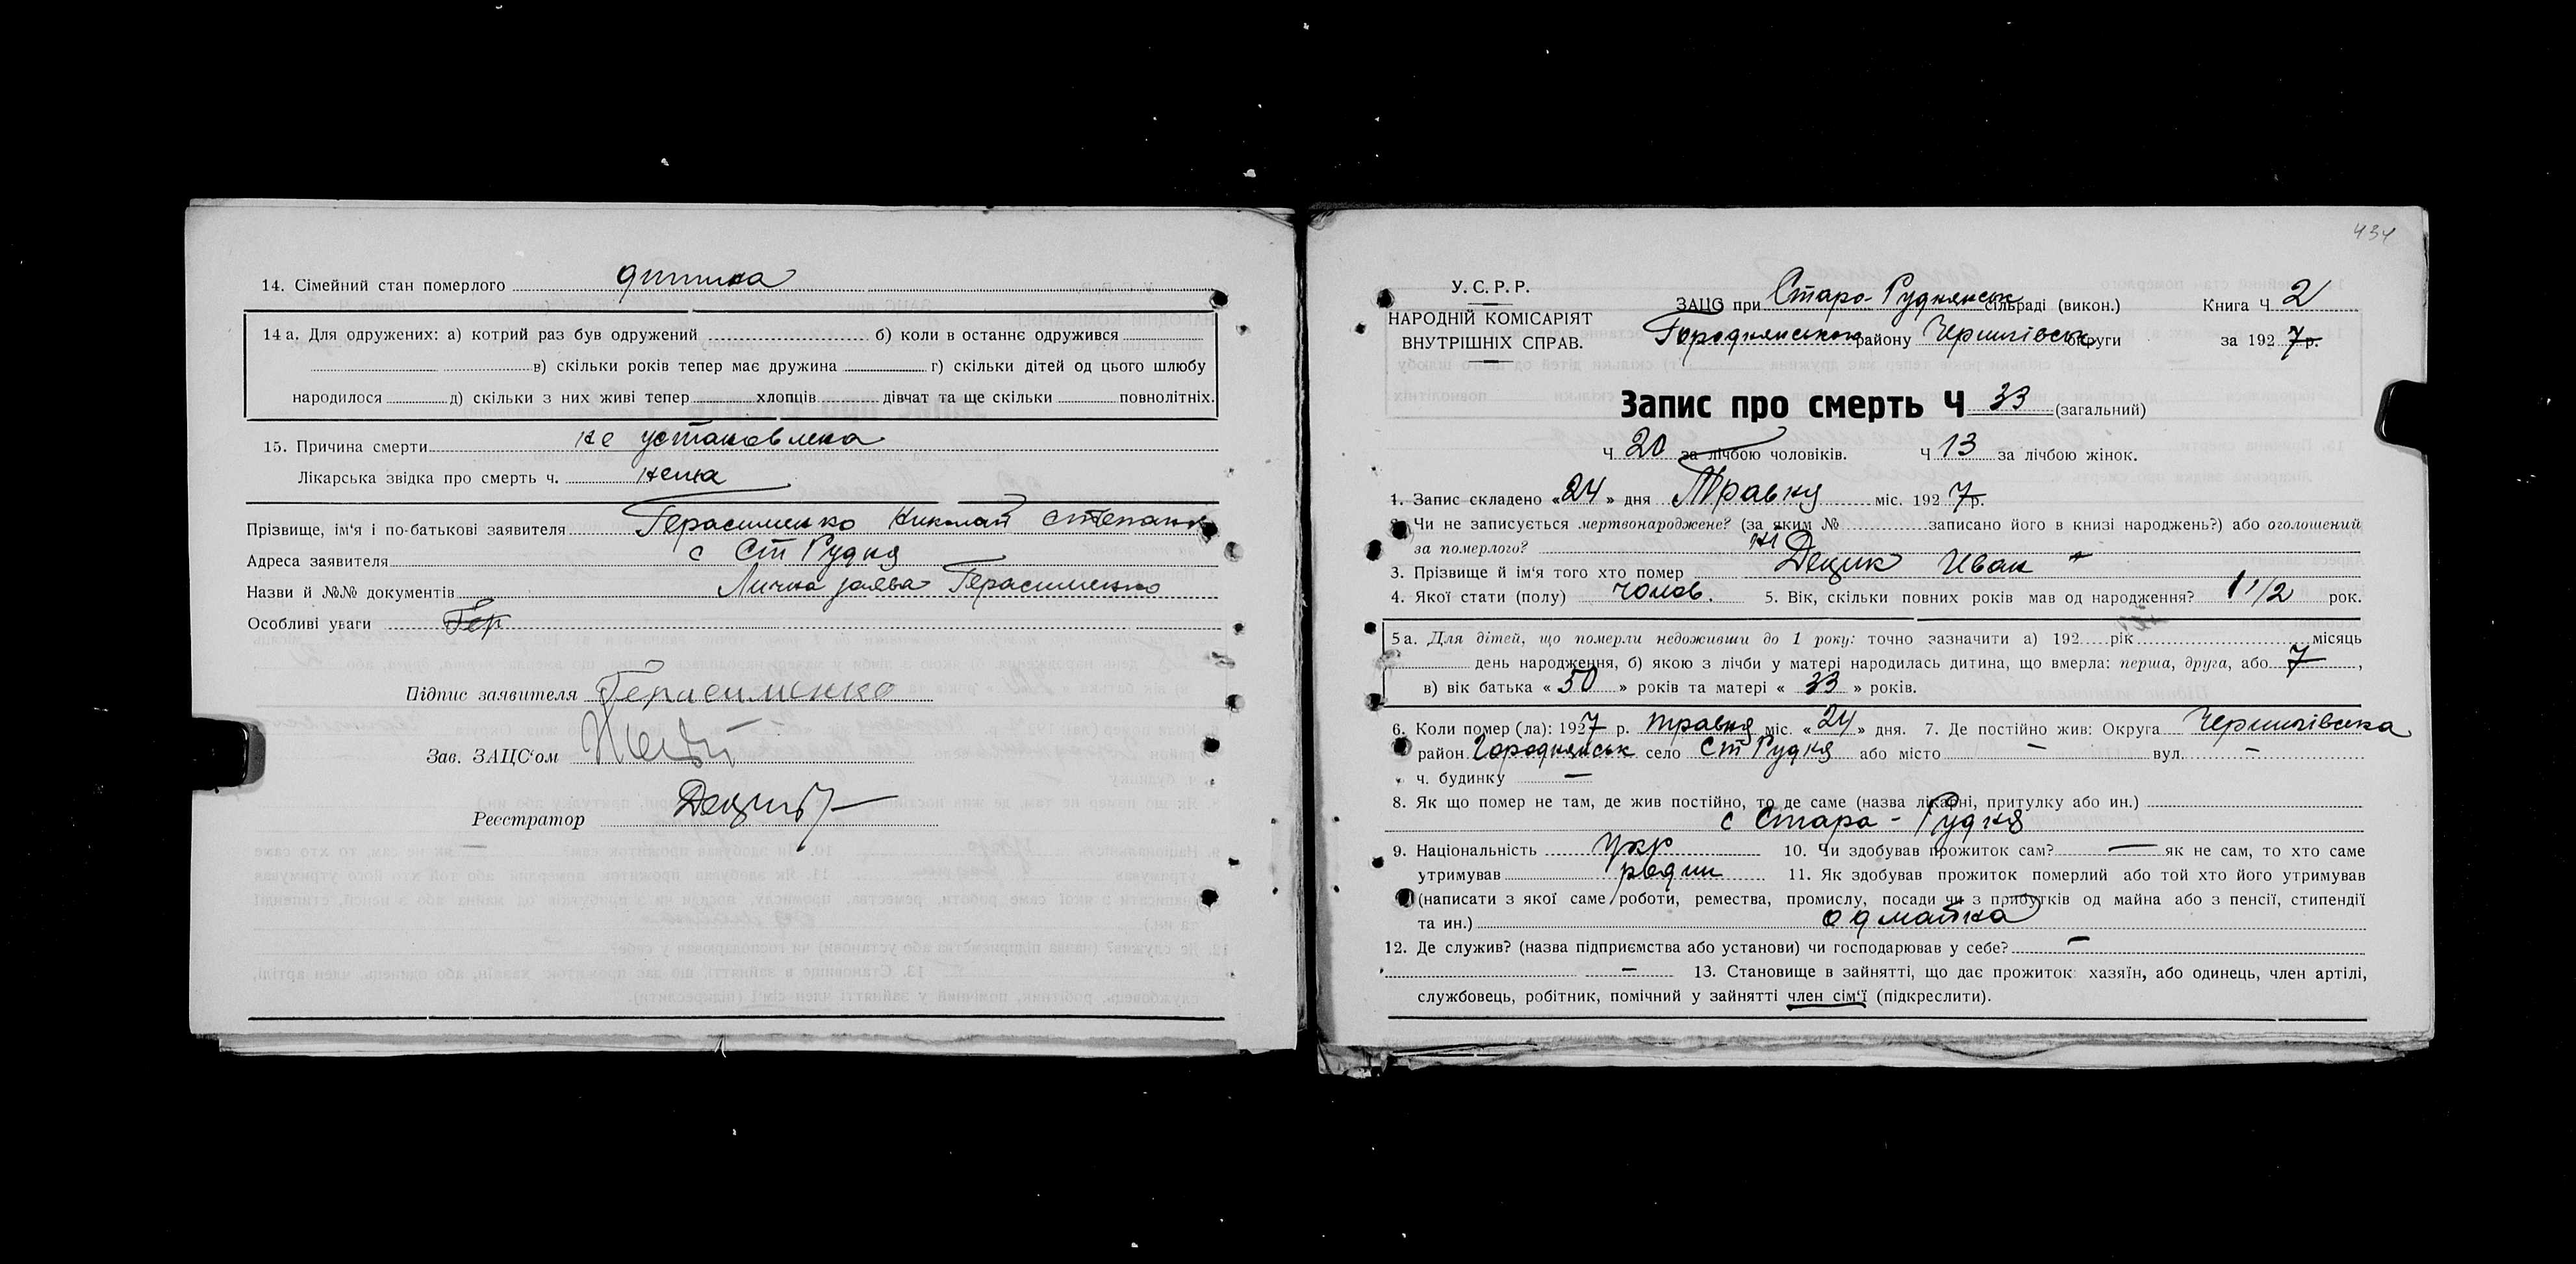 14. Сімейний стан померлого дитина
14 а. Для одружених: а) котрий раз був одружений б) коли в останнє одружився
в) скільки років тепер має дружина г) скільки дітей од цього шлюбу
народилося д) скільки з них живі тепер хлопців дівчат та ще скільки повнолітніх.
15. Причина смерти не установлена
Лікарська звідка про смерть ч. нема
Прізвище, ім'я і по-батькові заявителя Герасименко Николай Степанов
Адреса заявителя с Ст Рудня
Назви й №№ документів Лична заява Герасименко
Особливі уваги Гер
Підпис заявителя Герасименко
Зав. ЗАЦС'ом
Реєстратор
434
У. С. Р. Р.
НАРОДНІЙ КОМІСАРІЯТ
ВНУТРІШНІХ СПРАВ.
ЗАЦС при Старо-Руднянськ сільраді (викон.) Книга Ч 2
Городнянськой району Чернигівськ округи за 1927 р.
Запис про смерть Ч 33 (загальний)
Ч 20 за лічбою чоловіків. Ч 13 за лічбою жінок.
1. Запис складено «24» дня Травня міс. 1927 р.
Чи не записується мертвонароджене? (за яким № записано його в книзі народжень?) або оголошений
за померлого? Ні
3. Прізвище й ім'я того хто помер Децик Иван
4. Якої стати (полу) чолов. 5. Вік, скільки повних років мав од народження? 1 1/2 рок.
5 а. Для дітей, що померли недоживши до 1 року: точно зазначити а) 192 рік місяць
день народження, б) якою з лічби у матері народилась дитина, що вмерла: перша, друга, або 7,
в) вік батька «50» років та матері «33» років.
6. Коли помер (ла): 1927 р. травня міс. «24» дня. 7. Де постійно жив: Округа Чернигівська
район Городнянськ село Ст Рудня або місто — вул. —
ч. будинку —
8. Як що помер не там, де жив постійно, то де саме (назва лікарні, притулку або ин.)
с Стара-Рудня
9. Національність Укр 10. Чи здобував прожиток сам? — як не сам, то хто саме
утримував родит 11. Як здобував прожиток померлий або той хто його утримував
(написати з якої саме роботи, ремества, промислу, посади чи з прибутків од майна або з пенсії, стипендії
та ин.) од майна
12. Де служив? (назва підприємства або установи) чи господарював у себе? —
— 13. Становище в зайнятті, що дає прожиток: хазяїн, або одинець, член артілі,
службовець, робітник, помічний у зайнятті член сім'ї (підкреслити).